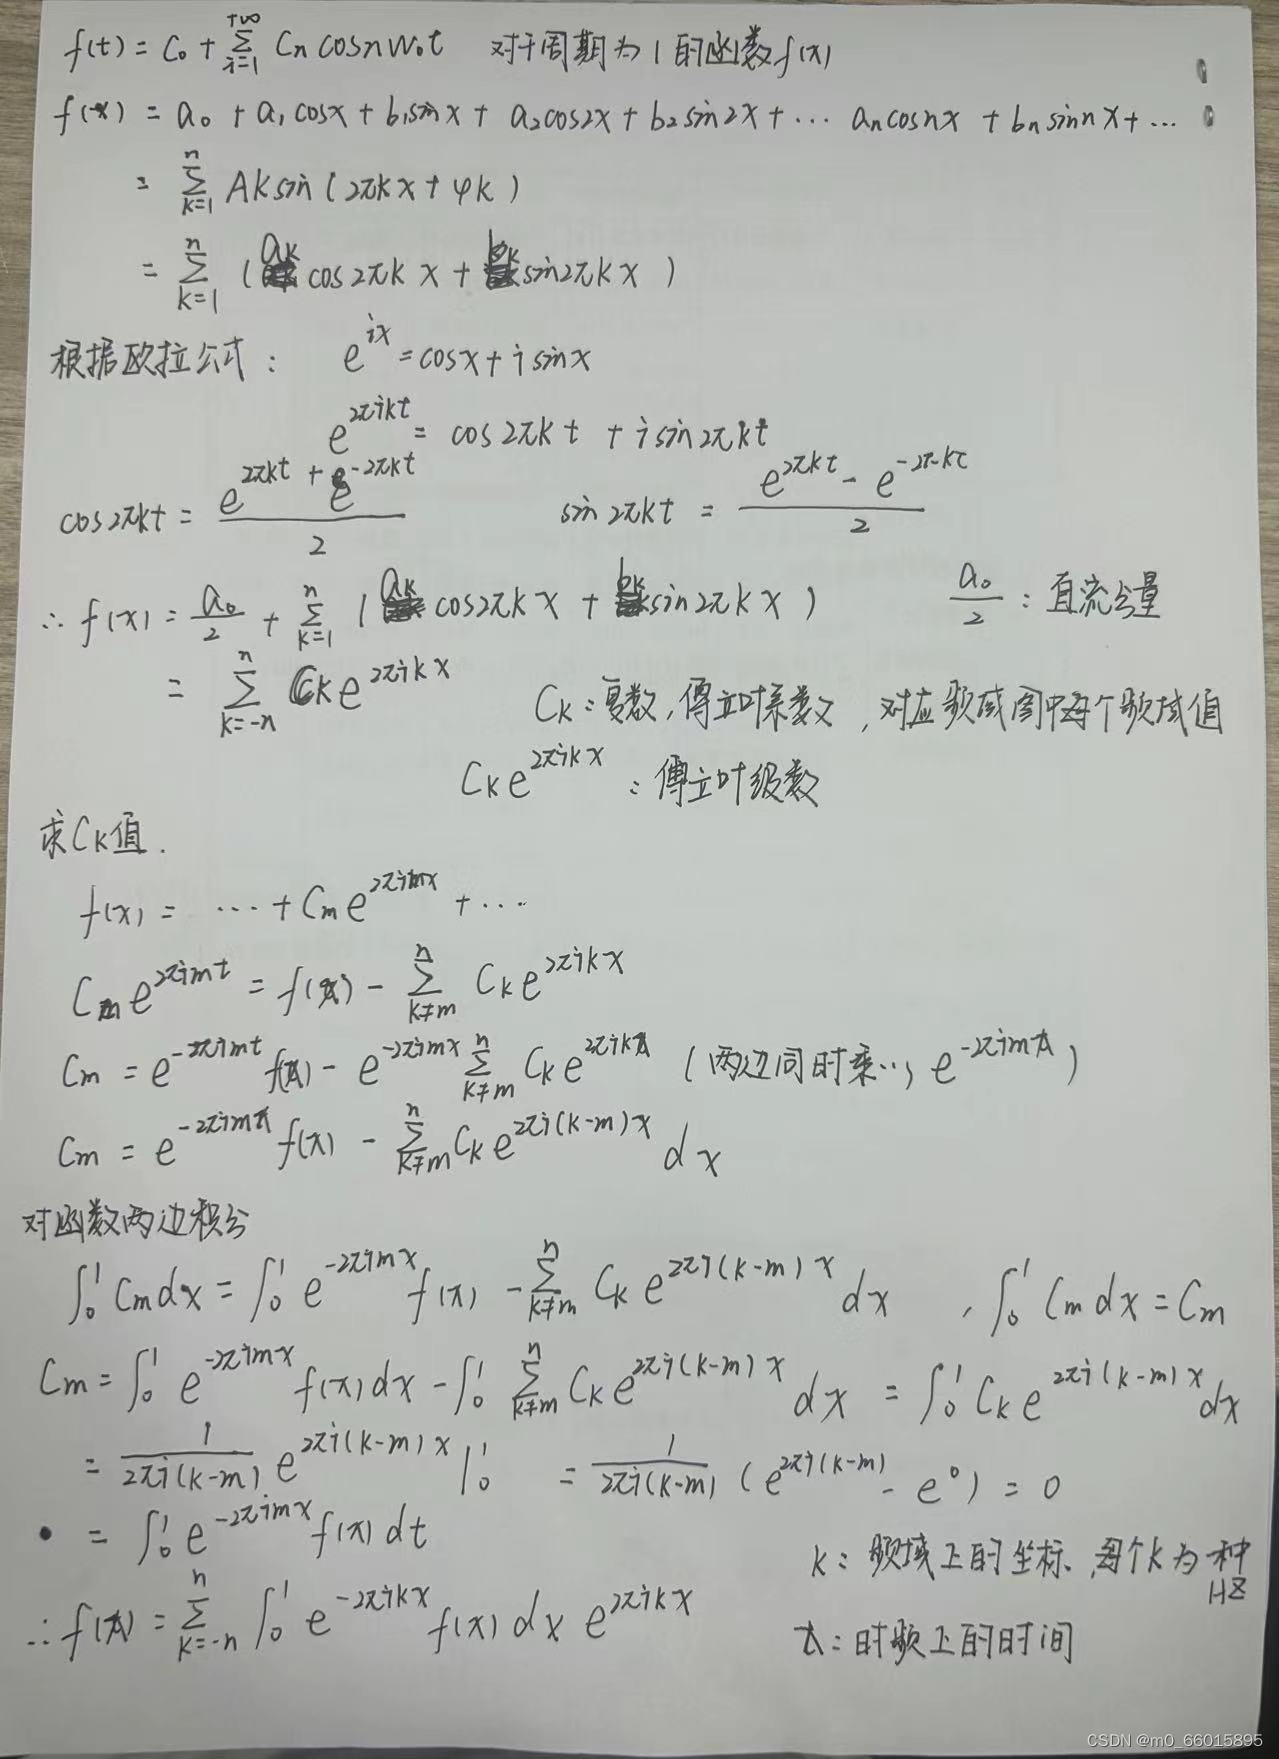 f(t) = C₀ + Σ_{i=1}^{+∞} Cn cosnW₀t 对于周期为1的函数f(x)
f(x) = a₀ + a₁cosx + b₁sinx + a₂cos2x + b₂sin2x + ··· ancosnx + bnsinnx + ···
= Σ_{k=1}^{n} Aksin(2πkx + φk)
= Σ_{k=1}^{n} (ak cos2πkx + bk sin2πkx)
根据欧拉公式: e^{ix} = cosx + isinx
e^{2πikt} = cos2πkt + isin2πkt
cos2πkt = (e^{2πkt} + e^{-2πkt})/2 sin2πkt = (e^{2πkt} - e^{-2πkt})/2
∴ f(x) = a₀/2 + Σ_{k=1}^{n} (ak cos2πkx + bk sin2πkx) a₀/2 : 直流分量
= Σ_{k=-n}^{n} Cke^{2πikx} Ck: 复数, 傅立叶系数, 对应频域图中每个频域值
Cke^{2πikx} : 傅立叶级数
求Ck值.
f(x) = ··· + Cme^{2πimx} + ···
Cme^{2πimt} = f(x) - Σ_{k≠m}^{n} Cke^{2πikx}
Cm = e^{-2πimt}f(x) - e^{-2πimx} Σ_{k≠m}^{n} Cke^{2πikx} (两边同时乘··, e^{-2πimx})
Cm = e^{-2πimx}f(x) - Σ_{k≠m}^{n} Cke^{2πi(k-m)x} dx
对函数两边积分
∫₀¹ Cmdx = ∫₀¹ e^{-2πimx}f(x) - Σ_{k≠m}^{n} Cke^{2πi(k-m)x} dx , ∫₀¹ Cmdx = Cm
Cm = ∫₀¹ e^{-2πimx}f(x)dx - ∫₀¹ Σ_{k≠m}^{n} Cke^{2πi(k-m)x} dx = ∫₀¹ Cke^{2πi(k-m)x}dx
= 1/(2πi(k-m)) e^{2πi(k-m)x} |₀¹ = 1/(2πi(k-m)) (e^{2πi(k-m)} - e⁰) = 0
• = ∫₀¹ e^{-2πimx}f(x)dt
k: 频域上的坐标、每个k为一种HZ
∴ f(x) = Σ_{k=-n}^{n} ∫₀¹ e^{-2πikx}f(x)dx e^{2πikx}
: 时频上的时间
CSDN @m0_66015895